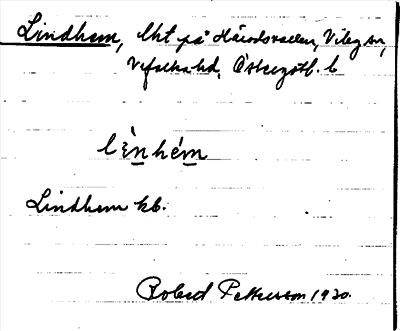 Lindhem, lht på Häradsveden, Viby sn,
Vifolka hd, Östergötl. l.
lìnhém
Lindhem kb.
Robert Petterson 1930.